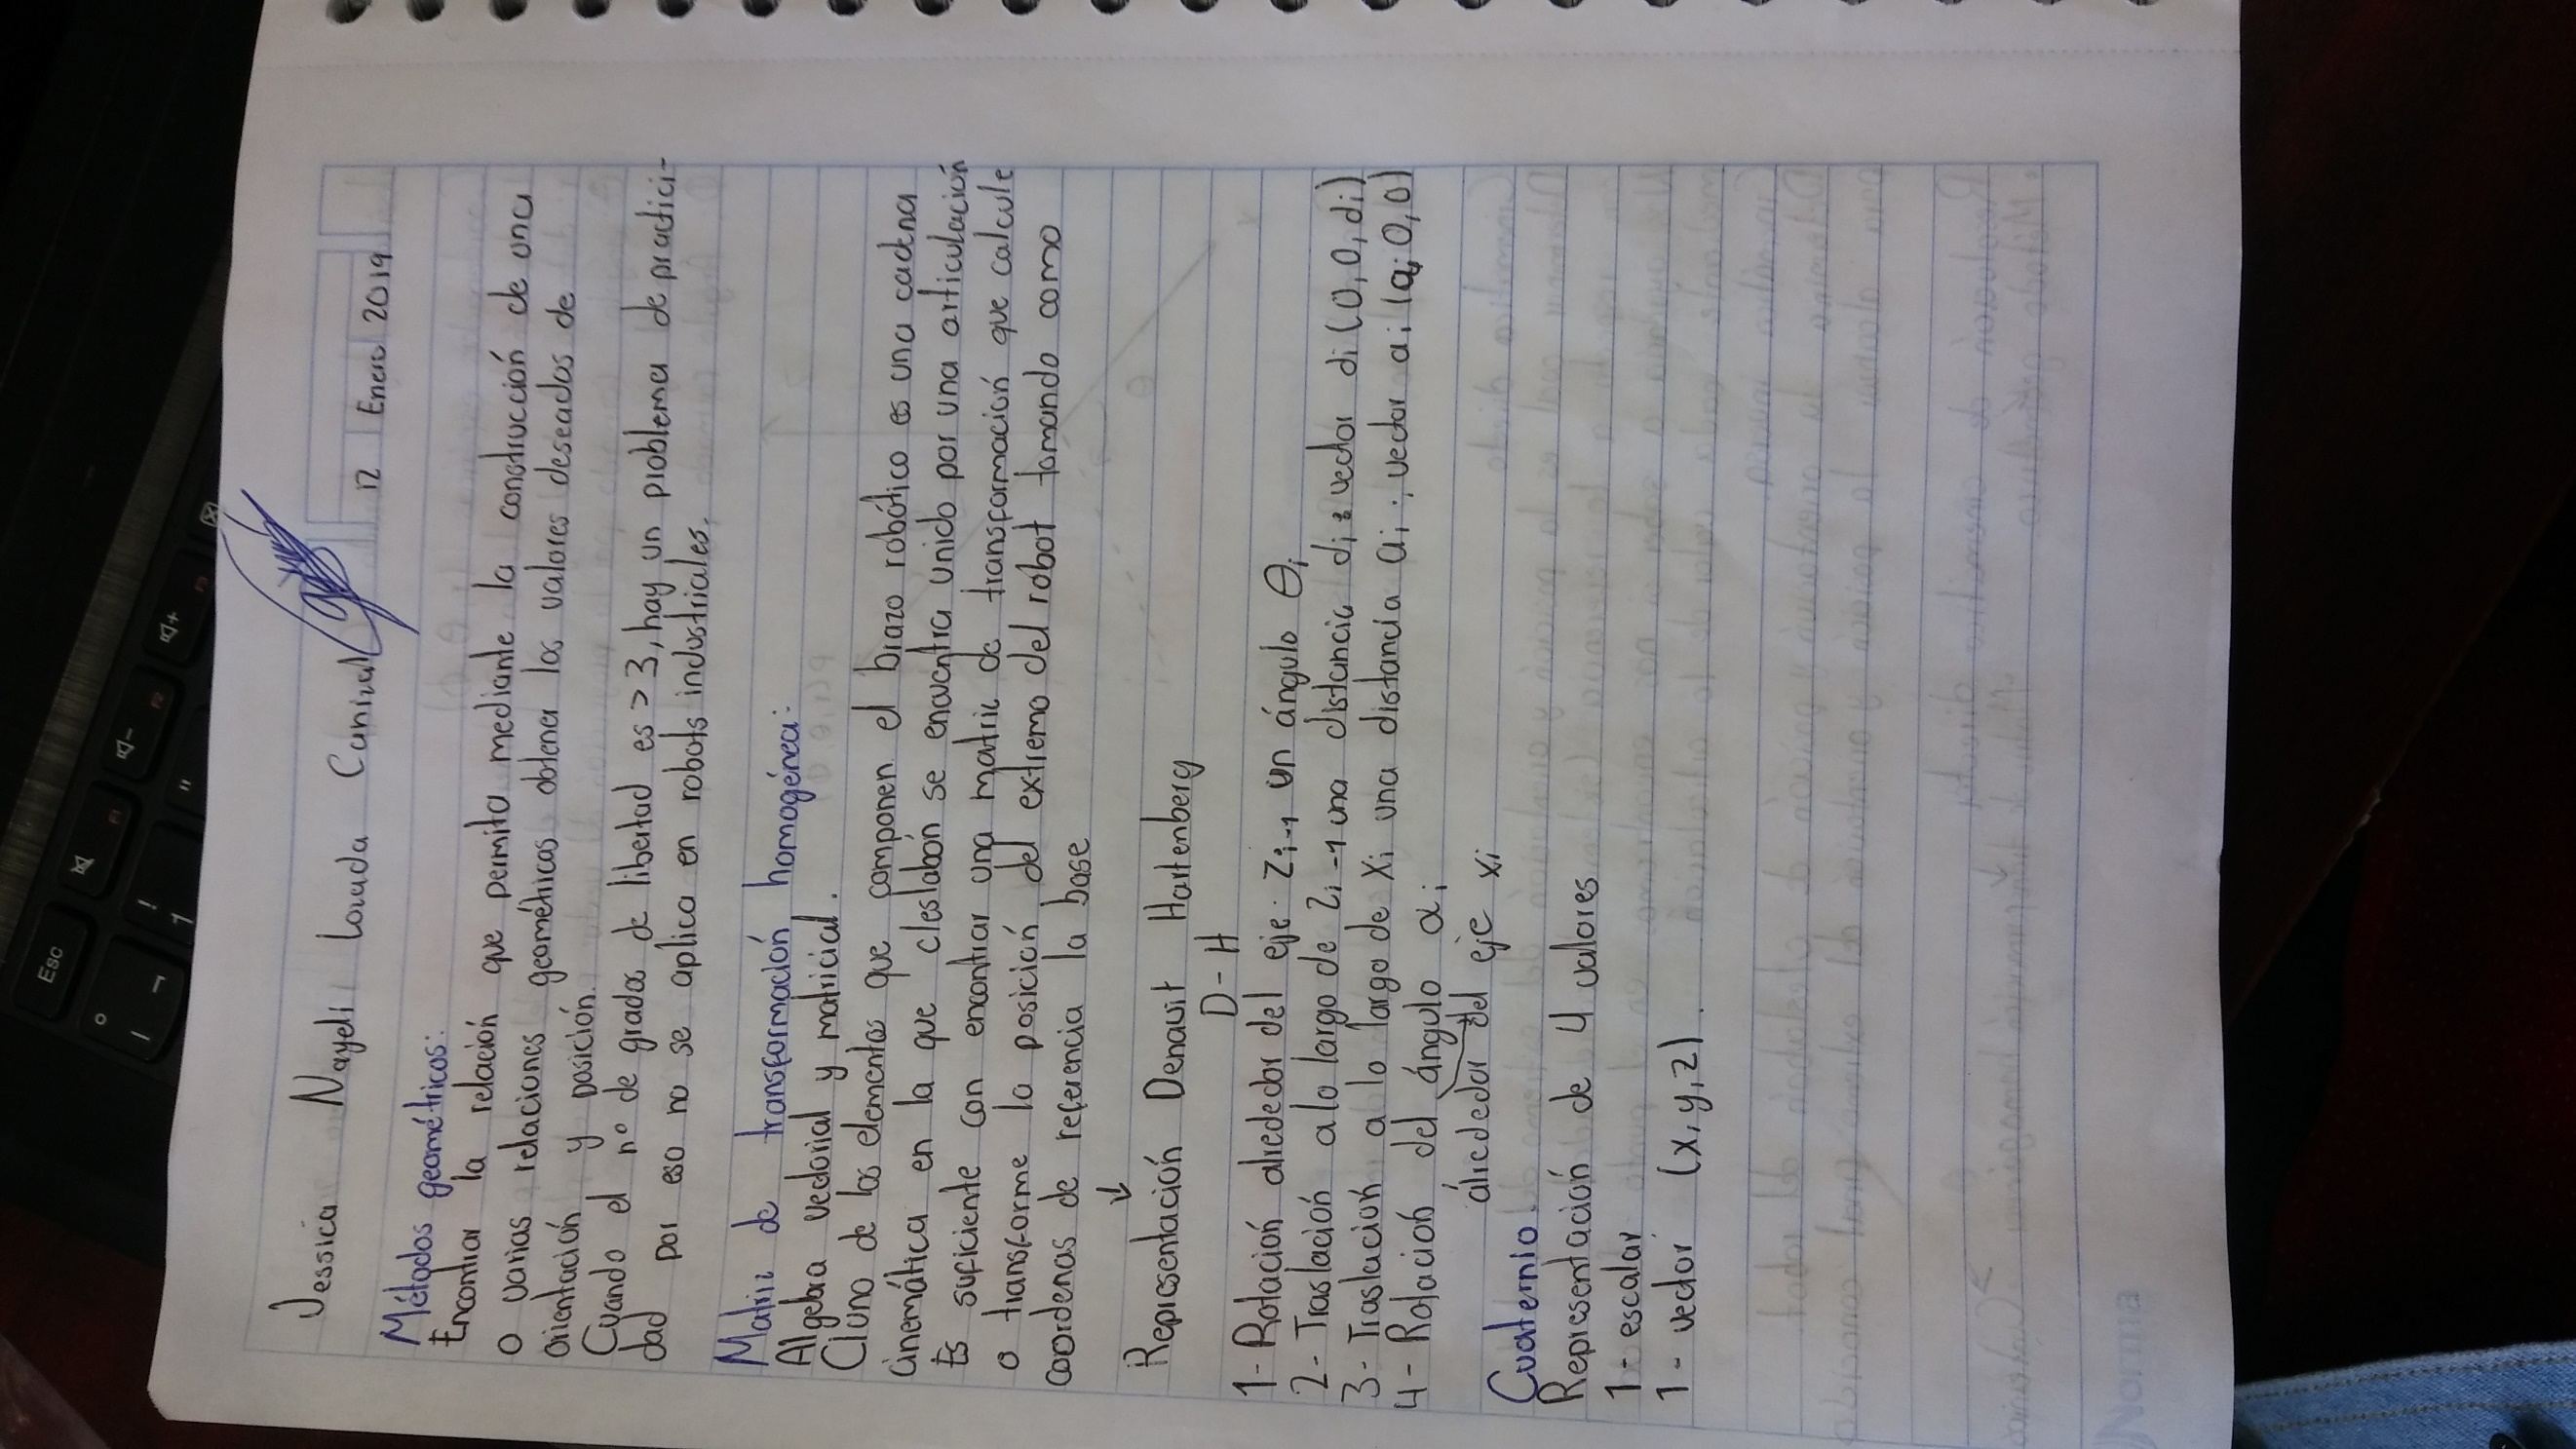 Jessica Nayeli Lozada
12 Enero 2019
Métodos geométricos:
Encontrar la relación que permita mediante la construcción de una
o varias relaciones geométricas obtener los valores deseados de
orientación y posición.
Cuando el nº de grados de libertad es > 3, hay un problema de practici-
dad por eso no se aplica en robots industriales.
Matriz de transformación homogénea:
Algebra vectorial y matricial.
C/uno de los elementos que componen el brazo robótico es una cadena
cinemática en la que c/eslabón se encuentra unido por una articulación
Es suficiente con encontrar una matriz de transformación que calcule
o transforme la posición del extremo del robot tomando como
coordenas de referencia la base
↓
Representación Denavit Hartenberg
D-H
1- Rotación alrededor del eje Zi-1 un ángulo θi
2- Traslación a lo largo de Zi-1 una distancia di; vector di (0,0,di)
3- Traslación a lo largo de Xi una distancia ai; vector ai (ai,0,0)
4- Rotación del ángulo αi
alrededor del eje xi
Cuaternio
Representación de 4 valores
1- escalar
1- vector (x,y,z)
Norma
Esc
F1
F2
F3
!
1
"